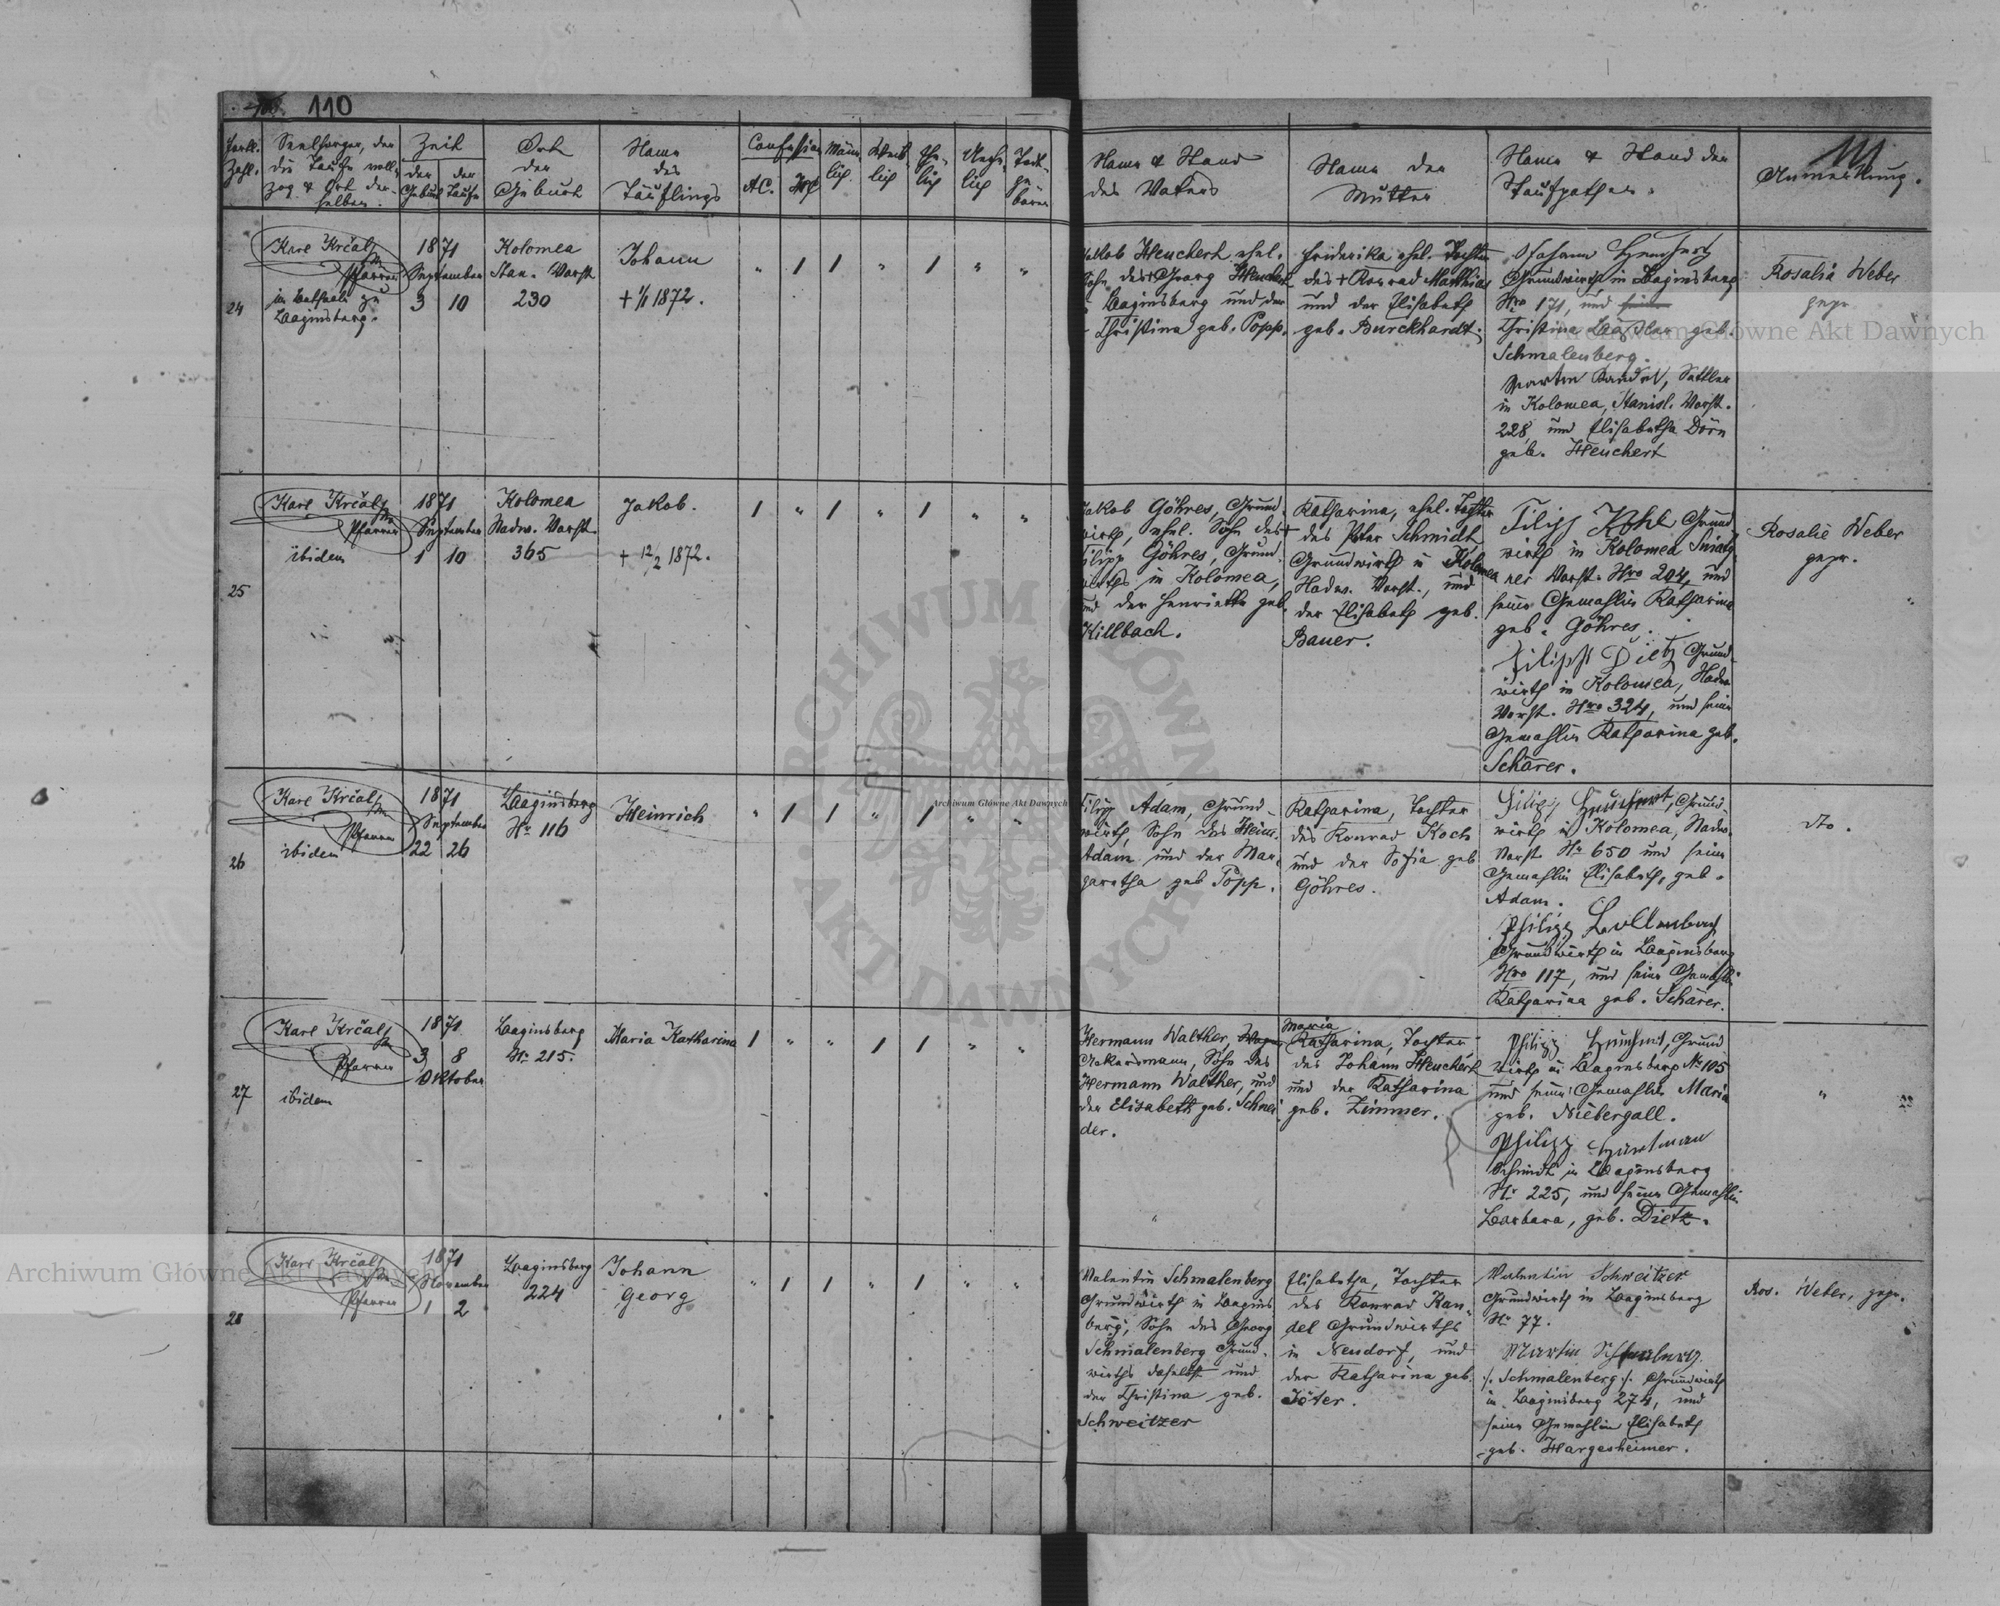 110
Fortl. Zahl.
Seelsorger, der
die Taufe voll-
zog & Ort der-
selben.
Zeit
der Geburt
der Taufe
Ort
der
Geburt
Name
des
Täuflings
Confession
AC.
HC
Männ-
lich
Weib-
lich
Ehe-
lich
Unehe-
lich
Todt-
ge-
boren
Name & Stand
des Vaters
Name der
Mutter
Name & Stand der
Taufpathen.
111
Anmerkung.
24
Karl Krčal
Pfarrer
im Bethaus zu
Baginsberg.
1871
September
3 10
Kolomea
Stan. Vorst
230
Johann
+ 1/1 1872.
" / / " / " "
Jakob Heuchert ehel.
Sohn des Georg Heuchert
Baginsberg und der
Christina geb. Popp.
Friederika ehel. Tochter
des + Konrad Matthias
und der Elisabeth
geb. Burckhardt.
Grundwirth in Baginsberg
Nro 171, und
Christina geb.
Schmalenberg.
Sattler
in Kolomea, Stanisl. Vorst.
228, und Elisabetha Dörn
geb. Heuchert
Rosalia Weber
gepr
25
Karl Krčal
Pfarrer
ibidem
1871
September
1 10
Kolomea
Nadw. Vorst.
365
Jakob.
+ 12/2 1872.
/ " / " / " "
Jakob Göhres, Grund
wirth, ehel. Sohn des
Filipp Göhres, Grund
wirths in Kolomea,
und der Henriette geb.
Killbach.
Katharina, ehel. Tochter
des Peter Schmidt
Grundwirth in Kolomea
Nadw. Vorst., und
der Elisabeth geb.
Bauer.
Filipp Kohl Grund
wirth in Kolomea Sniaty
ner Vorst. Nro 204, und
seine Gemahlin Katharina
geb. Göhres.
Filipp Dietz Grund
wirth in Kolomea, Nadw.
Vorst. Nro 324, und seine
Gemahlin Katharina geb.
Schärer.
Rosalie Weber
gepr.
26
Karl Krčal
Pfarrer
ibidem
1871
September
22 26
Baginsberg
Nr. 116
Heinrich
" / / " / " "
Filipp Adam, Grund
wirth, Sohn des Hein.
Adam und der Mar-
garetha geb Popp.
Katharina, Tochter
des Konrad Koch
und der Sofia geb
Göhres.
Filipp Heuchert, Grund
wirth in Kolomea, Nadw.
Vorst Nr 650 und seine
Gemahlin Elisabeth, geb.
Adam.
Philipp
Grundwirth in Baginsberg
Nro 117, und seine Gemahlin
Katharina geb. Schärer.
dto.
27
Karl Krčal
Pfarrer
ibidem
1871
3 8
Oktober
Baginsberg
Nr. 215.
Maria Katharina
/ " " / / " "
Hermann Walther,
Ackersmann, Sohn des
Hermann Walther, und
der Elisabeth geb. Schnei-
der.
Maria
Katharina, Tochter
des Johann Heuchert
und der Katharina
geb. Zimmer.
Philipp Heuchert, Grund
wirth in Baginsberg Nr 105
und seine Gemahlin Maria
geb. Niebergall.
Philipp Hartman
Schmidt in Baginsberg
Nr 225, und seine Gemahlin
Barbara, geb. Dietz.
"
28
Karl Krčal
Pfarrer
1871
November
1 2
Baginsberg
224
Johann
Georg
" / / " / " "
Valentin Schmalenberg
Grundwirth in Bagins
berg, Sohn des Georg
Schmalenberg Grund-
wirths daselbst und
der Christina geb.
Schweitzer
Elisabetha, Tochter
des Konrad Kan-
del Grundwirths
in Neudorf, und
der Katharina geb.
Jöter.
Valentin Schweitzer
Grundwirth in Baginsberg
Nr 77.
Martin
/: Schmalenberg :/ Grundwirth
in Baginsberg 274, und
seine Gemahlin Elisabeth
geb. Hargesheimer.
Ros. Weber, gepr.
Archiwum Główne Akt Dawnych
Archiwum Główne Akt Dawnych
Archiwum Główne Akt Dawnych
ARCHIWUM GŁÓWNE AKT DAWNYCH